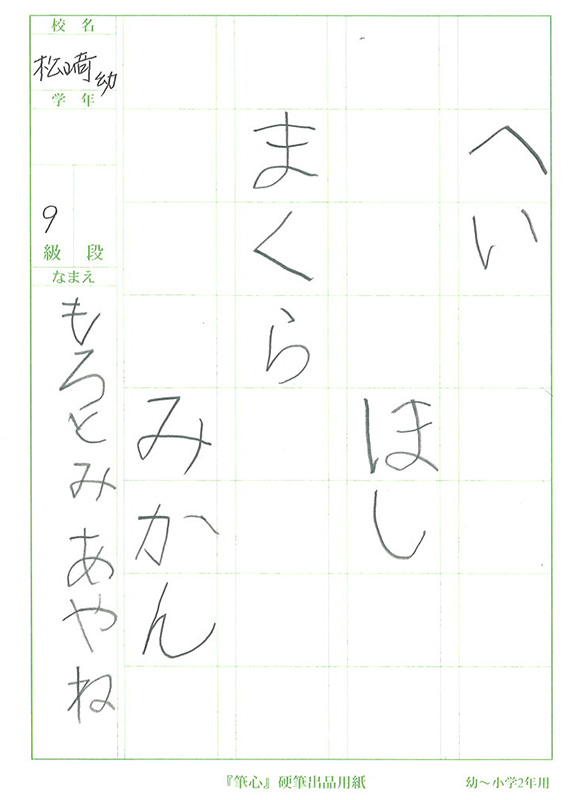 へい
ほし
まくら
みかん
校名
松﨑幼
学年
9
級 段
なまえ
もろとみ あやね
『筆心』硬筆出品用紙
幼〜小学2年用